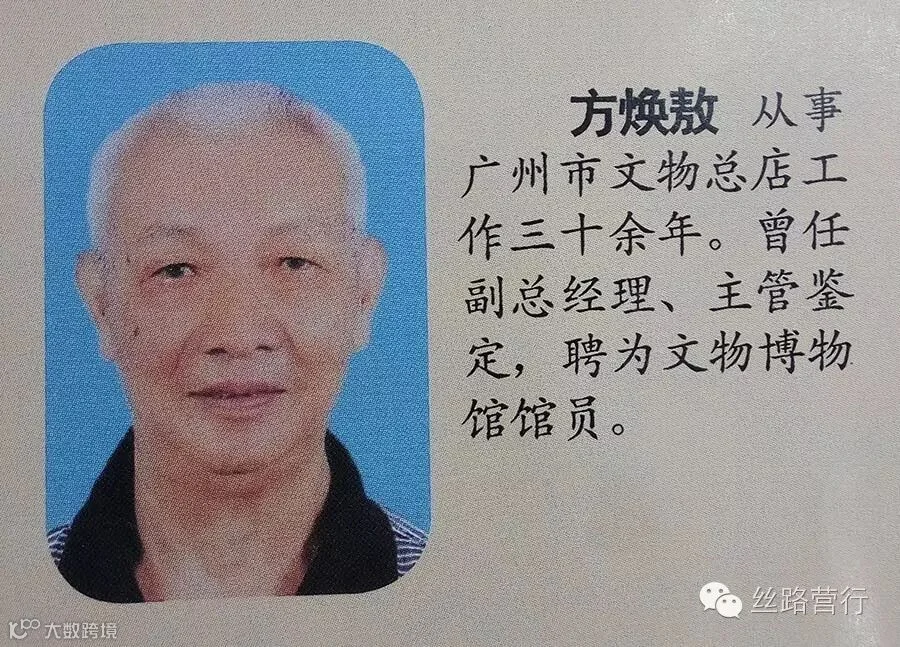 方焕敖 从事
广州市文物总店工
作三十余年。曾任
副总经理、主管鉴
定，聘为文物博物
馆馆员。
丝路营行
大数跨境